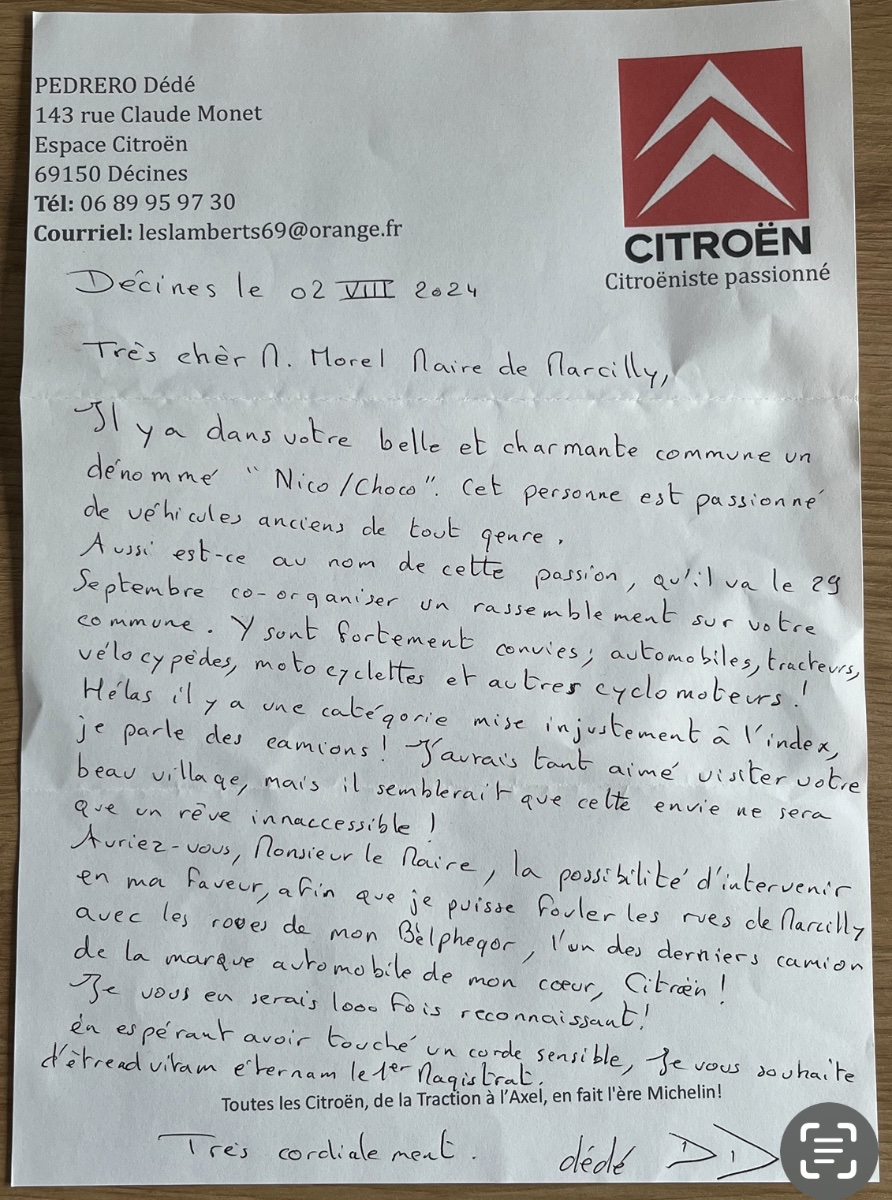 PEDRERO Dédé
143 rue Claude Monet
Espace Citroën
69150 Décines
Tél: 06 89 95 97 30
Courriel: leslamberts69@orange.fr
CITROËN
Citroëniste passionné
Décines le 02 VIII 2024
Très chèr M. Morel Maire de Marcilly,
Il y a dans votre belle et charmante commune un
dénommé "Nico/Choco". Cet personne est passionné
de véhicules anciens de tout genre.
Aussi est-ce au nom de cette passion, qu'il va le 29
Septembre co-organiser un rassemblement sur votre
commune. Y sont fortement convies; automobiles, tracteurs,
vélocypèdes, motocyclettes et autres cyclomoteurs!
Hélas il y a une catégorie mise injustement à l'index,
je parle des camions! J'aurais tant aimé visiter votre
beau village, mais il semblerait que cette envie ne sera
que un rêve innaccessible!
Auriez-vous, Monsieur le Maire, la possibilité d'intervenir
en ma faveur, afin que je puisse fouler les rues de Marcilly
avec les roues de mon Bèlphegor, l'un des derniers camion
de la marque automobile de mon cœur, Citroën!
Je vous en serais 1000 fois reconnaissant!
én espérant avoir touché un corde sensible, Je vous souhaite
d'être ad vitam eternam le 1er Magistrat.
Toutes les Citroën, de la Traction à l'Axel, en fait l'ère Michelin!
Très cordialement. dédé